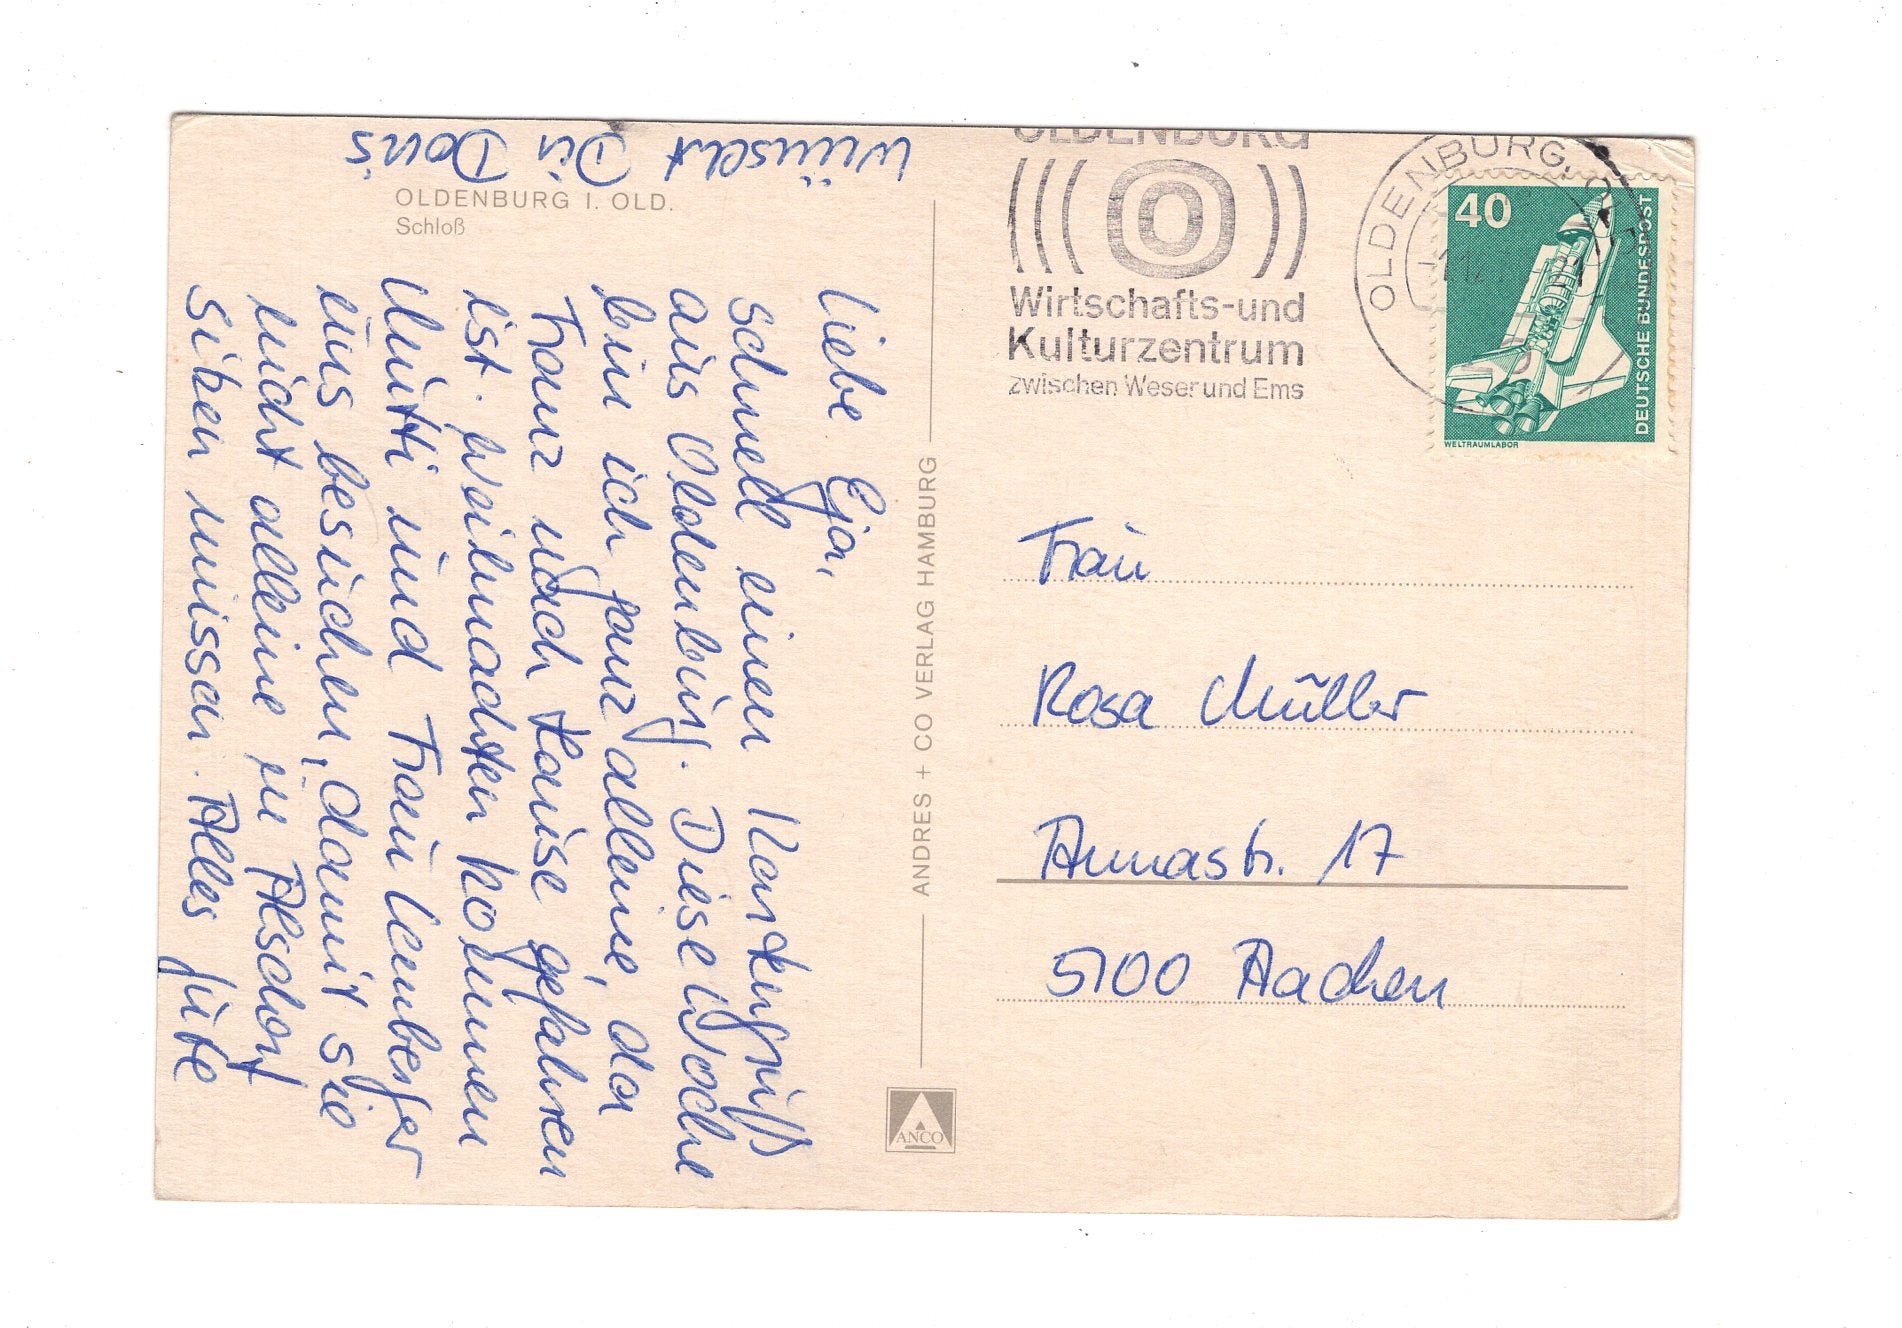 OLDENBURG I. OLD.
Schloß
Liebe Eja,
schnell einen Kartengruß
aus Oldenburg. Diese Woche
bin ich ganz alleine, da
Franz nach Hause gefahren
ist. Weihnachten kommen
Mutti und Frau Lemberger
uns besuchen, damit sie
nicht alleine in Alsdorf
sitzen müssen. Alles Gute
wünscht Dir Doris
ANDRES + CO VERLAG HAMBURG
ANCO
OLDENBURG
(((O))
Wirtschafts-und
Kulturzentrum
zwischen Weser und Ems
OLDENBURG, OLDB
40
DEUTSCHE BUNDESPOST
WELTRAUMLABOR
Frau
Rosa Müller
Annastr. 17
5100 Aachen